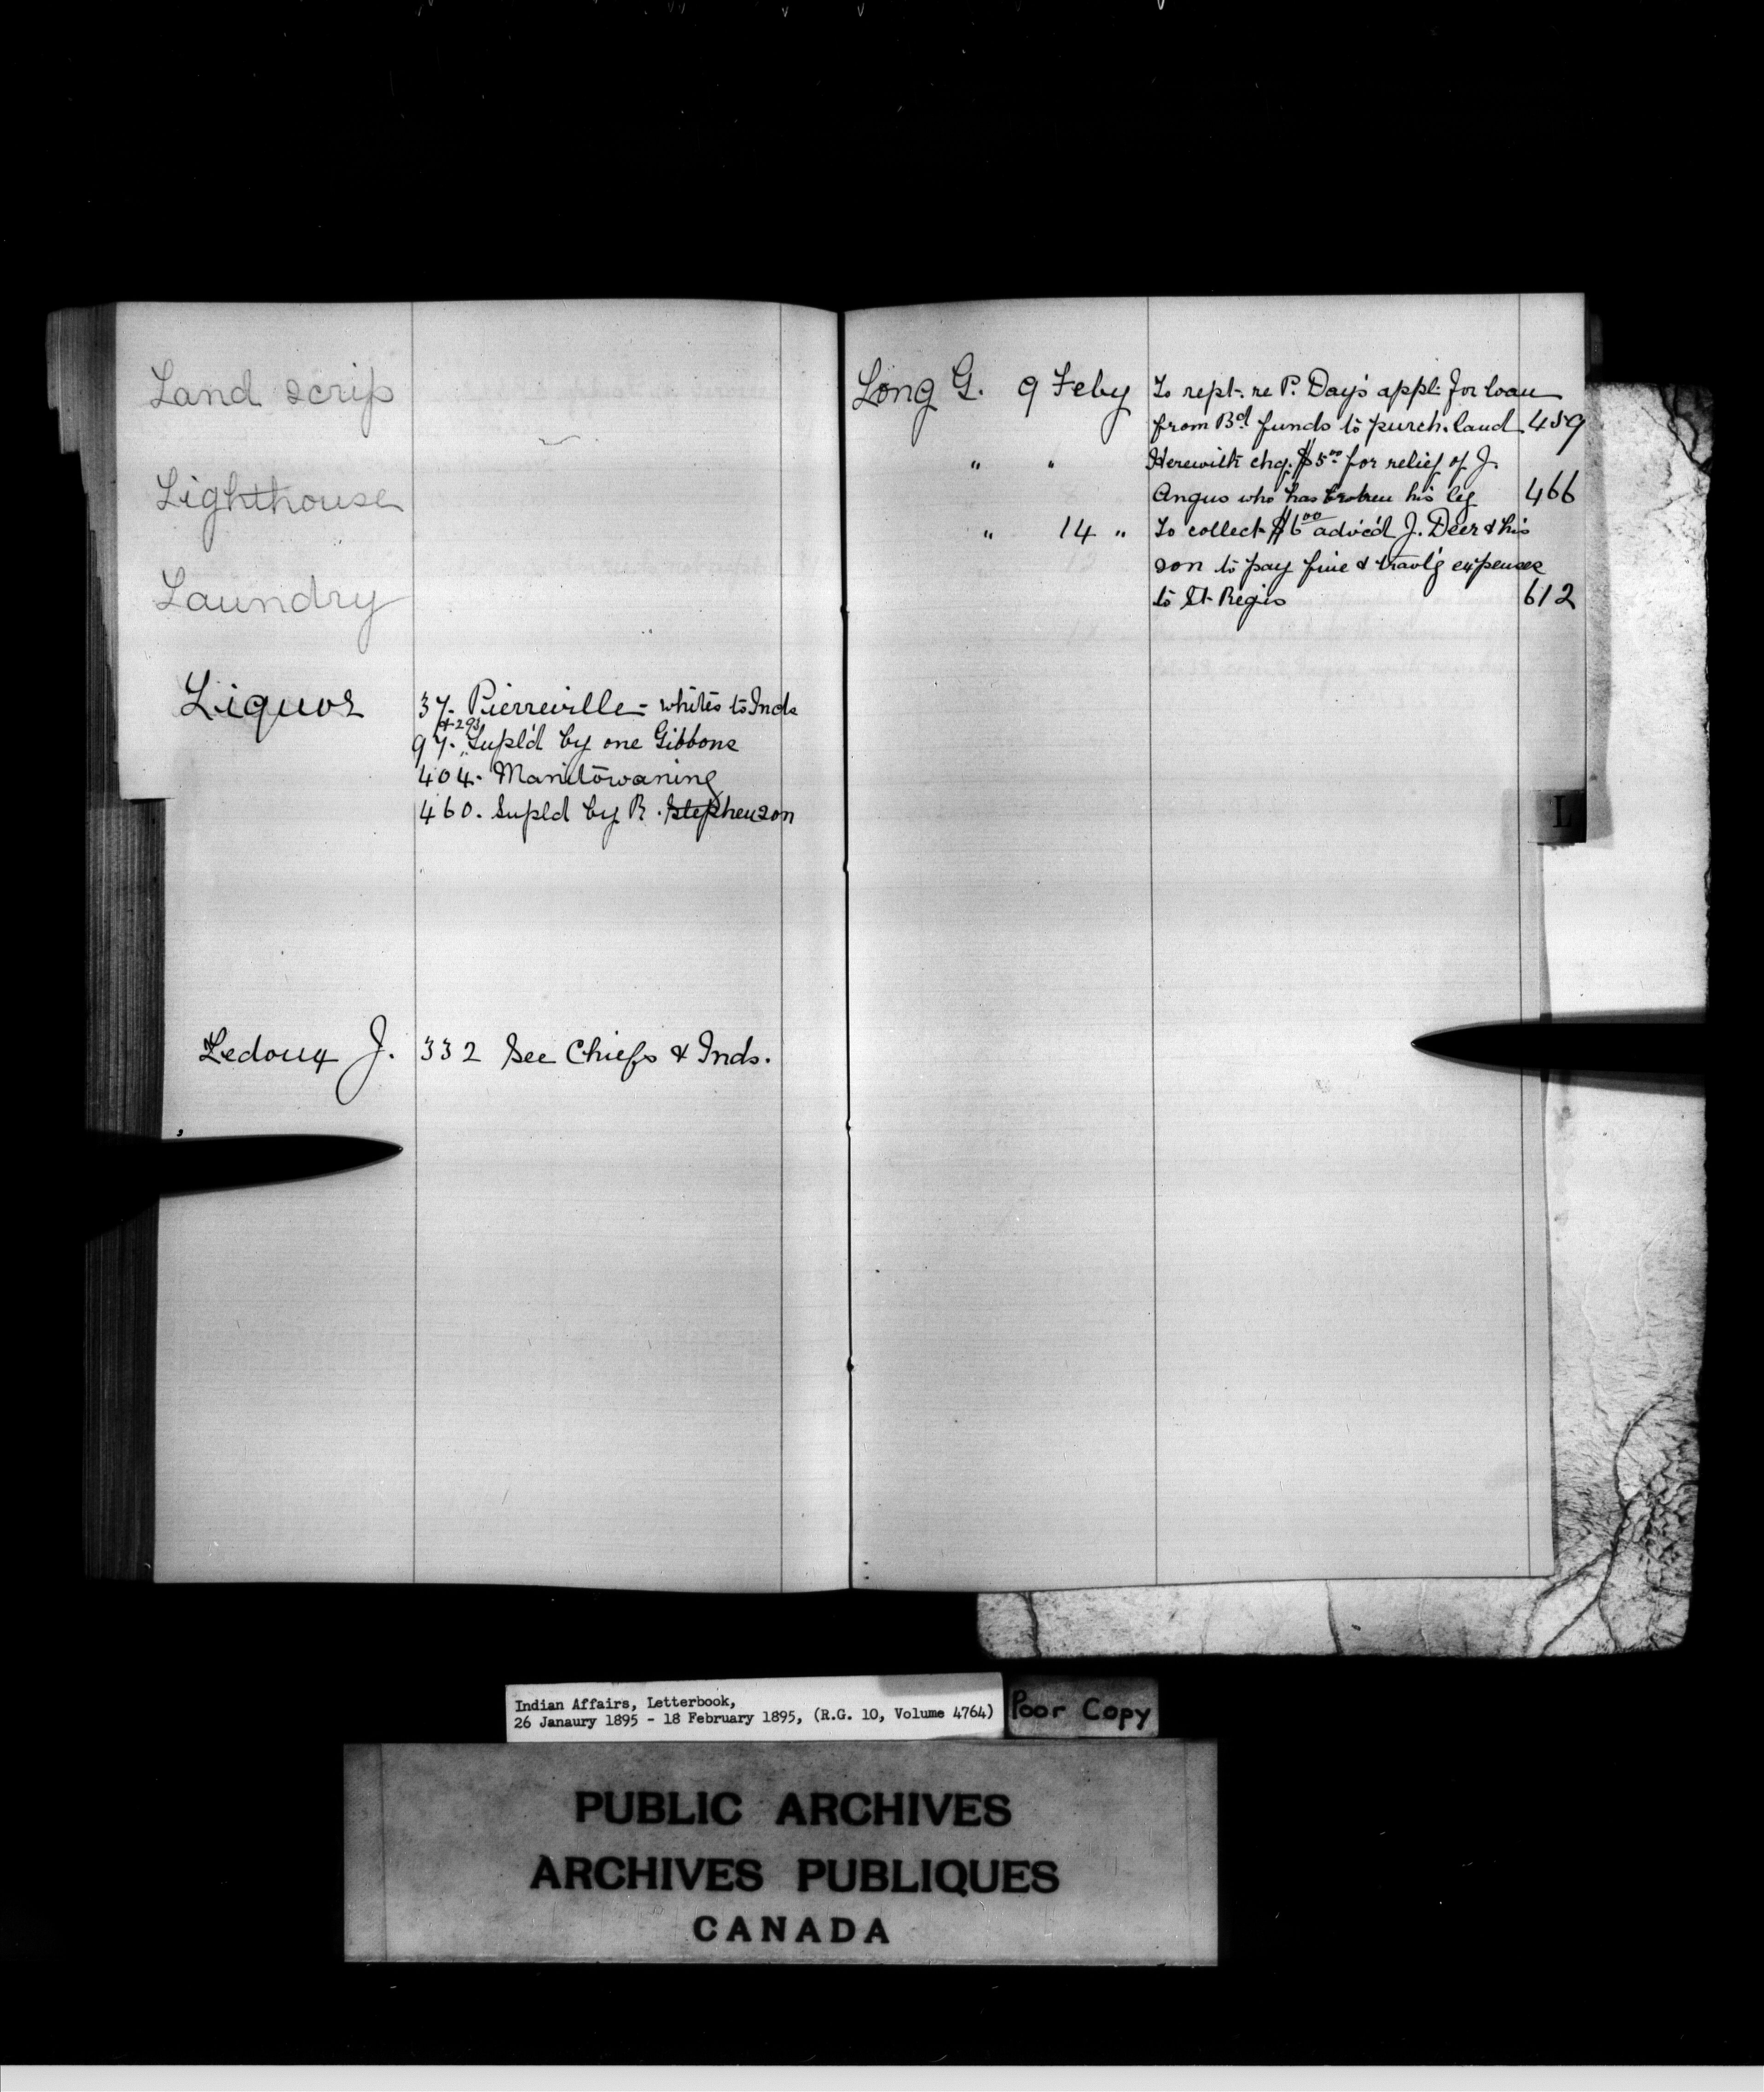 Land scrip
Lighthouse
Laundry
Liquor 37. Pierreville - whites to Inds
& 293
97. " Supl'd by one Gibbons
404. Manitowaning
460. Supld by R. Stephenson
Ledoux J. 332 See Chiefs & Inds.
Long G. 9 Feby To rept. re P. Day's appl. for loan
from Bd. funds to purch. land 459
" " Herewith chq. $5.00 for relief of J.
Angus who has broken his leg 466
" 14 " To collect $6.00 adv'c'd J. Deer & his
son to pay fine & trav'l'g expenses
to St. Regis 612
L
Indian Affairs, Letterbook,
26 Janaury 1895 - 18 February 1895, (R.G. 10, Volume 4764)
Poor Copy
PUBLIC ARCHIVES
ARCHIVES PUBLIQUES
CANADA